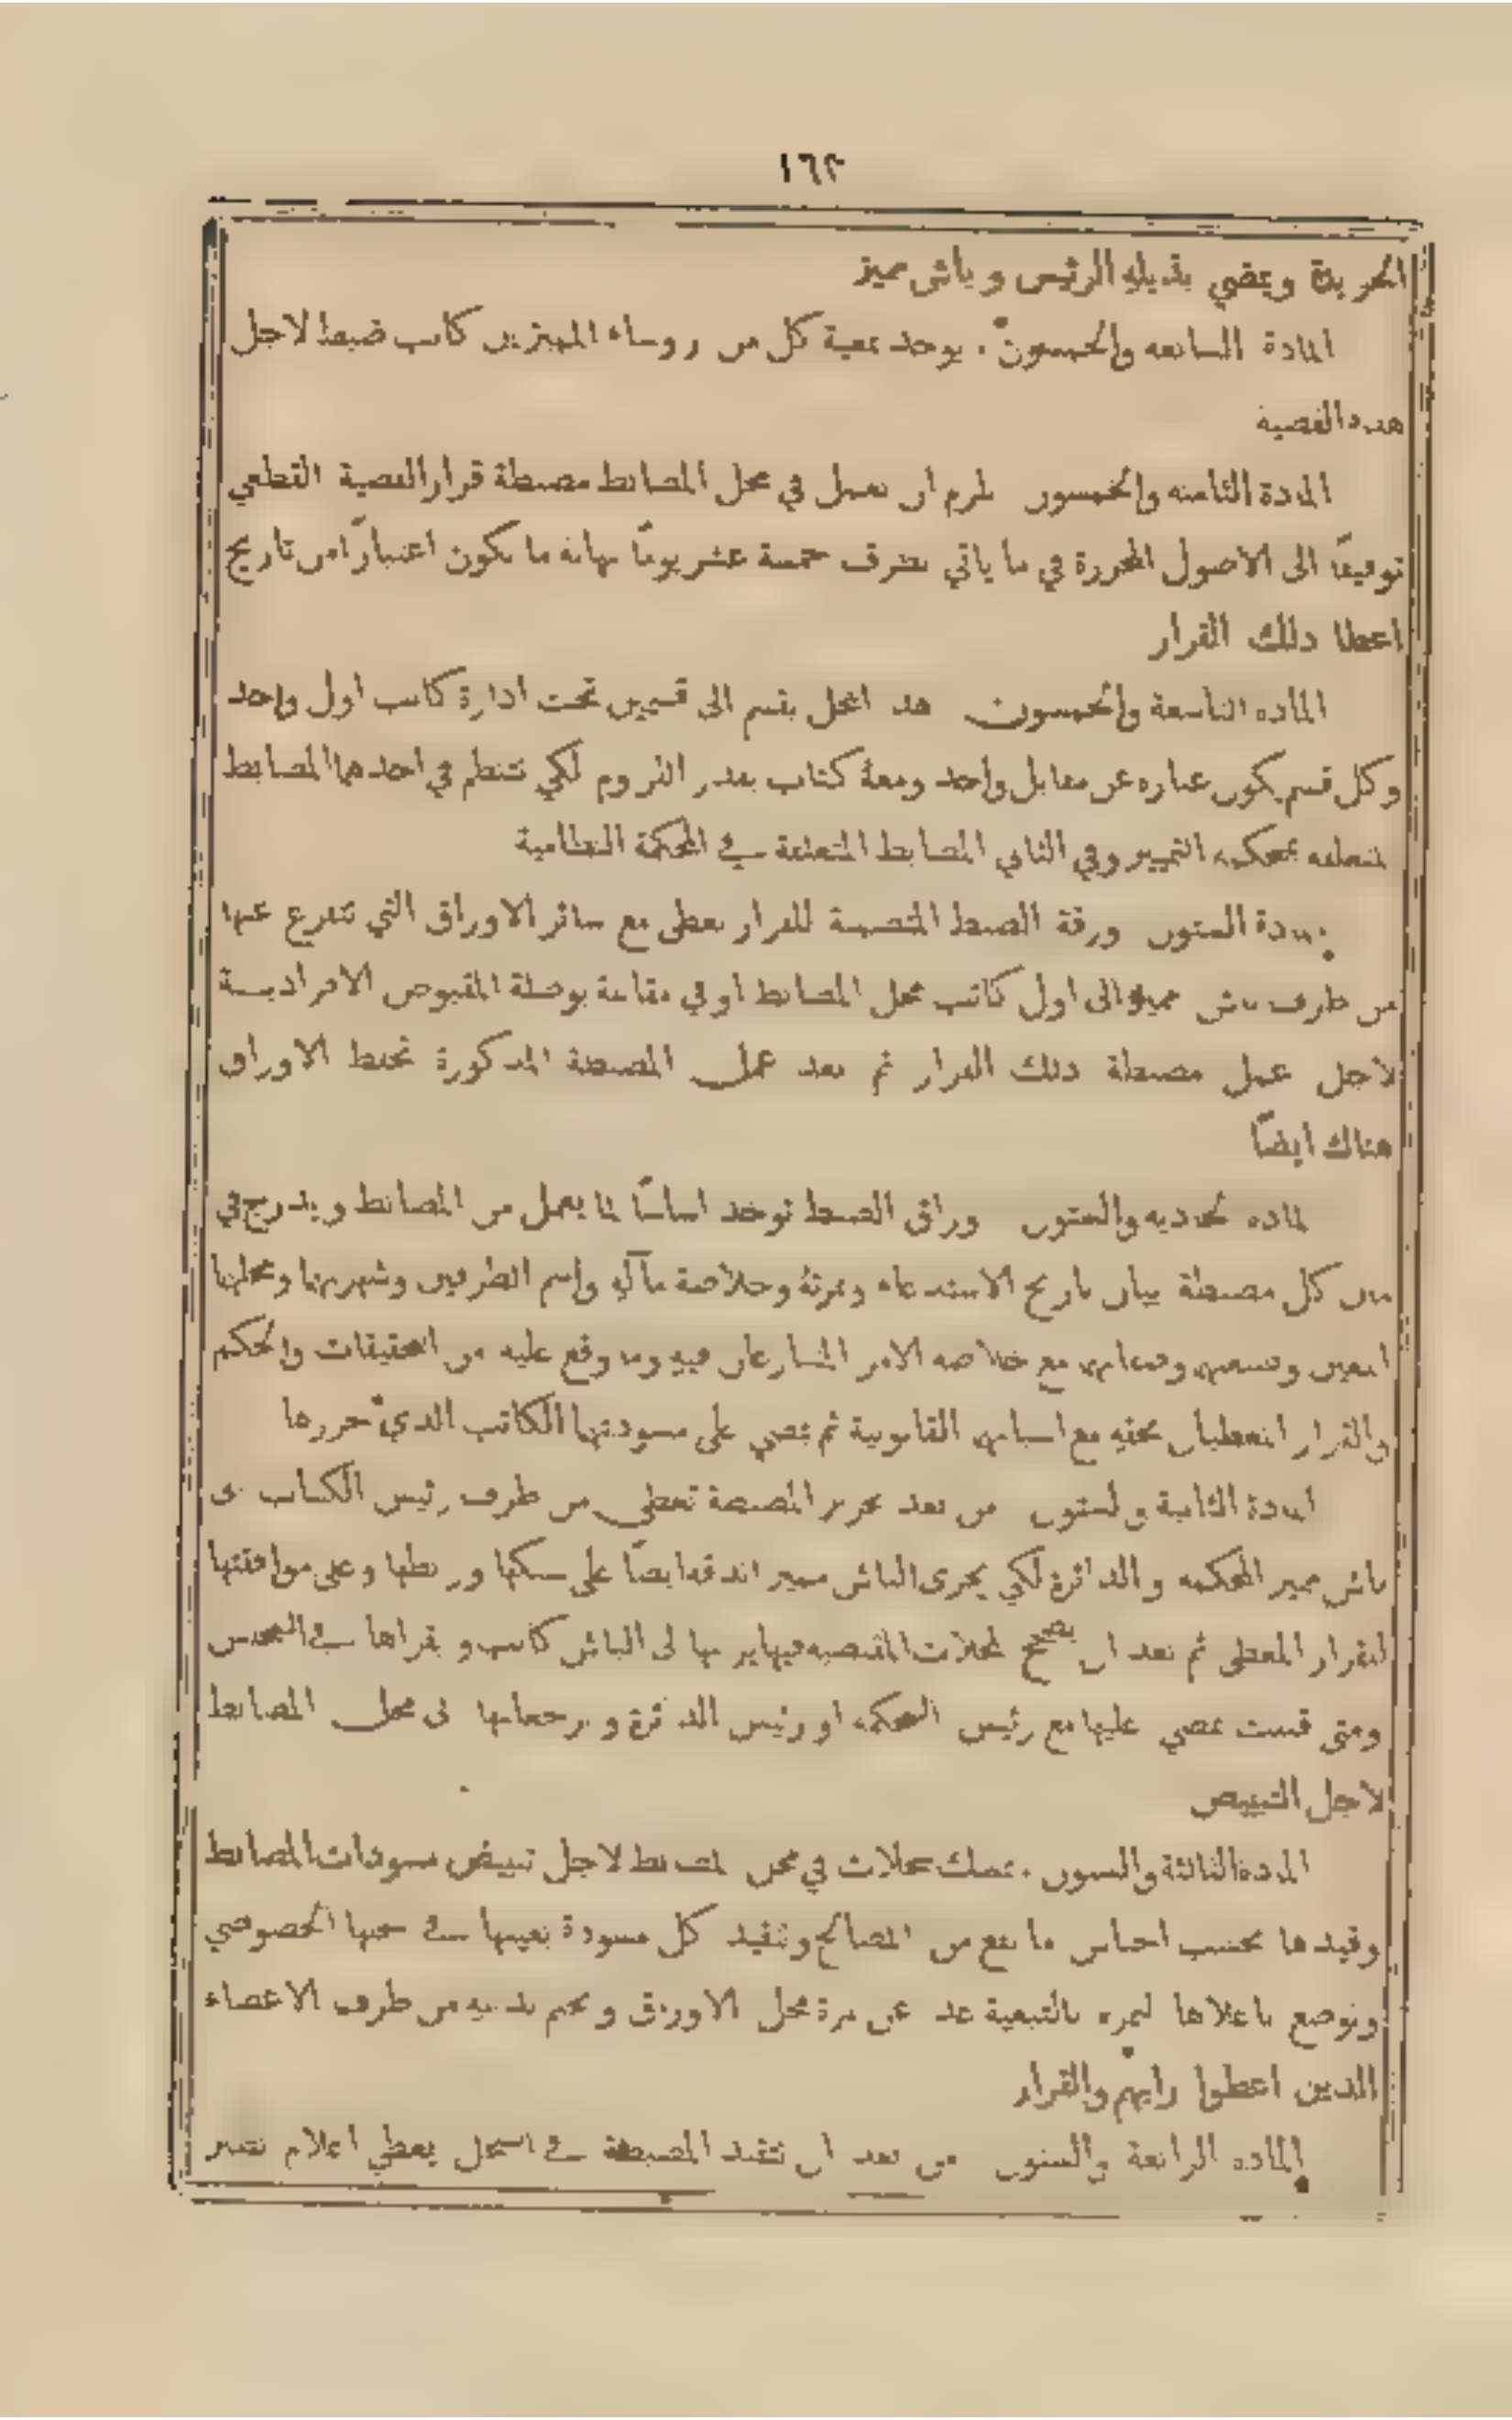 ١٦٢
الجريدة ويمضي بذيله الرئيس وباش مميز
المادة السابعه والخمسون . يوجد بمعية كل من روساء المميزين كاتب ضبط لاجل
هذه القضية
المادة الثامنه والخمسون يلزم ان تعمل في محل المضابط مضبطة قرار القضية القطعي
توفيقًا الى الاصول المحررة في ما ياتي بظرف خمسة عشر يومًا نهاية ما يكون اعتبارًا من تاريخ
اعطا ذلك القرار
الماده التاسعة والخمسون هذ المحل يقسم الى قسمين تحت ادارة كاتب اول واحد
وكل قسم يكون عباره عن مقابل واحد ومعهُ كتاب بقدر اللزوم لكي تنتظم في احدها المضابط
المتعلقه بمحكمه التمييز وفي الثاني المضابط المتعلقة في المحكمة النظامية
المادة الستون ورقة الضبط المتضمنة للقرار تعطى مع سائر الاوراق التي تتفرع عنها
من طرف باش مميز الى اول كاتب محل المضابط او في مقابلة بوصلة المقبوض الافراديـة
لاجل عمل مضبطة ذلك القرار ثم بعد عمل المضبطة المذكورة تحفظ الاوراق
هناك ايضًا
الماده الحاديه والستون اوراق الضبط توخذ اساسًا لما يعمل من المضابط ويندرج في
كل مضبطة بيان تاريخ الاستدعاء ونمرتهُ وخلاصة مآلهِ واسم الطرفين وشهرتها ومحلها
مع خلاصه الامر المتنازعان فيهِ وما وقع عليه من التحقيقات والحكم
والقرار المعطيان بحقهِ مع اسبابهِ القانونية ثم يمضي على مسودتها الكاتب الذي حررها
المادة الثانية والستون من بعد تحرير المضبطة تعطى من طرف رئيس الكتاب الى
باش مميز المحكمه والدائرة لكي يجري الباش مميز التدقيق ايضًا على سبكها وربطها وعلى موافقتها
للقرار المعطى ثم بعد ان يصحح المحلات المقتضيه فيها يرسلها الى الباش كاتب ويقراها في المجلس
ومتى قبلت يمضي عليها مع رئيس المحكمه او رئيس الدائرة ويرجعانها الى محل المضابط
لاجل التبييض
المادة الثالثة والستون . تمسك سجلات في محل المضابط لاجل تبييض مسودات المضابط
وقيدها بحسب اجناس ما يقع من المصالح وتقيد كل مسودة بعينها في سجلها الخصوصي
وتوضع باعلاها النمره بالتبعية عدا عن نمرة محل الاوراق ويختم بذيله من طرف الاعضاء
الذين اعطوا رايهم والقرار
الماده الرابعة والستون من بعد ان تتقيد المضبطة في السجل يعطي اعلام تمييز